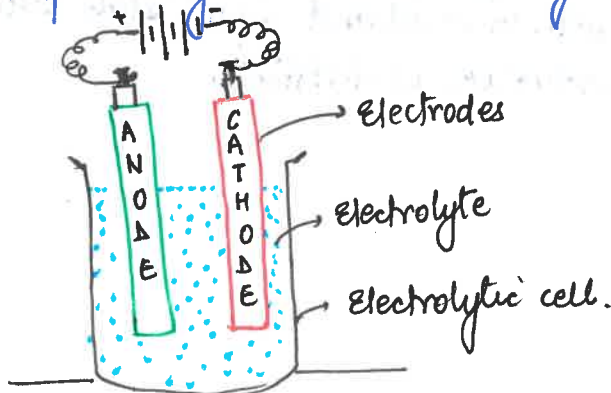 + -
ANODE
CATHODE
Electrodes
Electrolyte
Electrolytic cell.